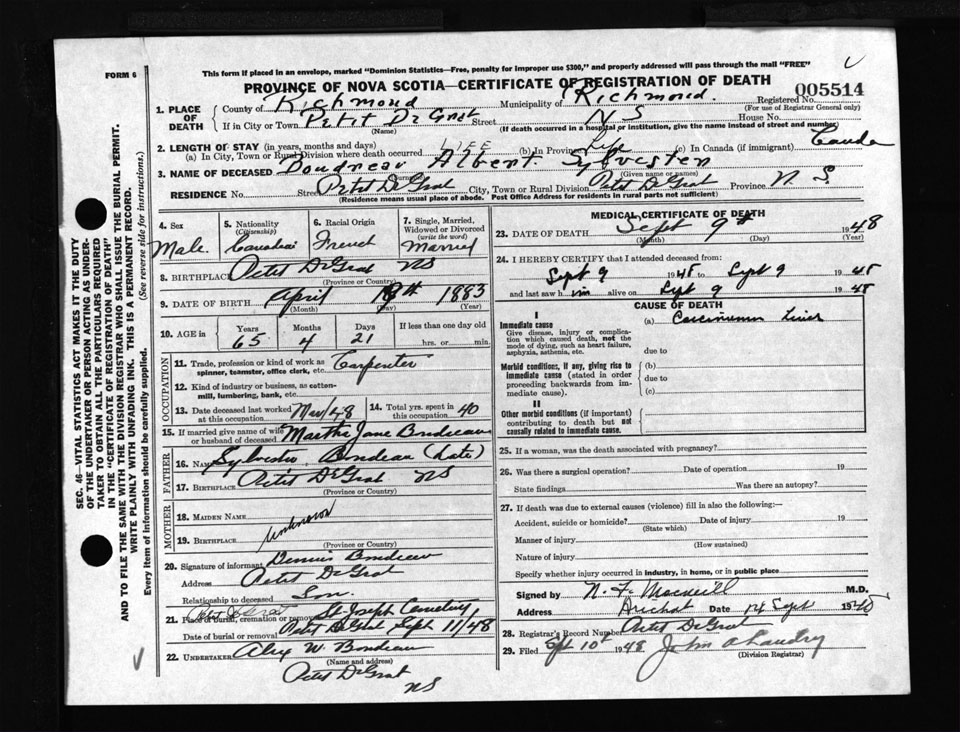 FORM 6
This form if placed in an envelope, marked "Dominion Statistics—Free, penalty for improper use $300," and properly addressed will pass through the mail "FREE"
PROVINCE OF NOVA SCOTIA—CERTIFICATE OF REGISTRATION OF DEATH
005514
1. PLACE OF DEATH
County of Richmond Municipality of Richmond. Registered No.
(For use of Registrar General only)
If in City or Town Petit De Grat Street N S House No.
(Name) (If death occurred in a hospital or institution, give the name instead of street and number)
2. LENGTH OF STAY (in years, months and days)
(a) In City, Town or Rural Division where death occurred LIFE (b) In Province Life (c) In Canada (if immigrant)
3. NAME OF DECEASED Boudreau Albert Sylvester
(Surname) (Given name or names)
RESIDENCE No. Street Petit De Grat City, Town or Rural Division Petit De Grat Province N S
(Residence means usual place of abode. Post Office Address for residents in rural parts not sufficient)
4. Sex Male
5. Nationality (Citizenship) Canadian
6. Racial Origin French
7. Single, Married, Widowed or Divorced (write the word) Married
8. BIRTHPLACE Petit De Grat NS
(Province or Country)
9. DATE OF BIRTH April 1883
(Month) (Day) (Year)
10. AGE Years 65 Months 4 Days 21 If less than one day old hrs. or min.
OCCUPATION
11. Trade, profession or kind of work as spinner, teamster, office clerk, etc. Carpenter
12. Kind of industry or business, as cotton-mill, lumbering, bank, etc.
13. Date deceased last worked at this occupation /48
14. Total yrs. spent in this occupation 40
15. If married give name of wife or husband of deceased Martha Jane Boudreau
FATHER
16. Name Sylvester Boudreau (Late)
17. BIRTHPLACE Petit De Grat NS
(Province or Country)
MOTHER
18. MAIDEN NAME
19. BIRTHPLACE Unknown
(Province or Country)
20. Signature of informant Dennis Boudreau
Address Petit De Grat
Relationship to deceased Son
21. Place of burial, cremation or removal Petit De Grat St Joseph Cemetery
Date of burial or removal Petit De Grat Sept 11/48
22. UNDERTAKER Alex W. Boudreau
(Name and address)
Petit De Grat
NS
MEDICAL CERTIFICATE OF DEATH
23. DATE OF DEATH Sept 9th 1948
(Month) (Day) (Year)
24. I HEREBY CERTIFY that I attended deceased from:
Sept 9 1948 to Sept 9 1948
and last saw him alive on Sept 9 1948
CAUSE OF DEATH
I
Immediate cause
Give disease, injury or complication which caused death, not the mode of dying, such as heart failure, asphyxia, asthenia, etc.
(a) Carcinoma Liver
due to
Morbid conditions, if any, giving rise to immediate cause (stated in order proceeding backwards from immediate cause).
(b)
due to
(c)
II
Other morbid conditions (if important) contributing to death but not causally related to immediate cause.
25. If a woman, was the death associated with pregnancy?
26. Was there a surgical operation? Date of operation 19
State findings Was there an autopsy?
27. If death was due to external causes (violence) fill in also the following:—
Accident, suicide or homicide? Date of injury 19
(State which)
Manner of injury
(How sustained)
Nature of injury
Specify whether injury occurred in industry, in home, or in public place
Signed by N. F. Macneill M.D.
Address Arichat Date 14 Sept 1948
28. Registrar's Record Number Petit De Grat
29. Filed Sept 10th 1948 John A Landry
(Division Registrar)
SEC. 46—VITAL STATISTICS ACT MAKES IT THE DUTY
OF THE UNDERTAKER OR PERSON ACTING AS UNDER-
TAKER TO OBTAIN ALL THE PARTICULARS REQUIRED
IN THE "CERTIFICATE OF REGISTRATION OF DEATH"
AND TO FILE THE SAME WITH THE DIVISION REGISTRAR WHO SHALL ISSUE THE BURIAL PERMIT.
WRITE PLAINLY WITH UNFADING INK. THIS IS A PERMANENT RECORD.
Every item of information should be carefully supplied. (See reverse side for instructions.)